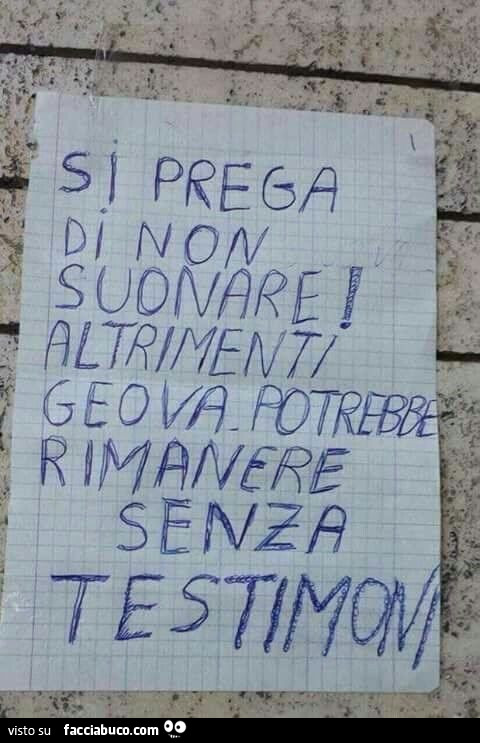 Si PREGA
Di NON
SUONARE!
ALTRIMENTI
GEOVA. POTREBBE
RIMANERE
SENZA
TESTIMONI
visto su facciabuco.com